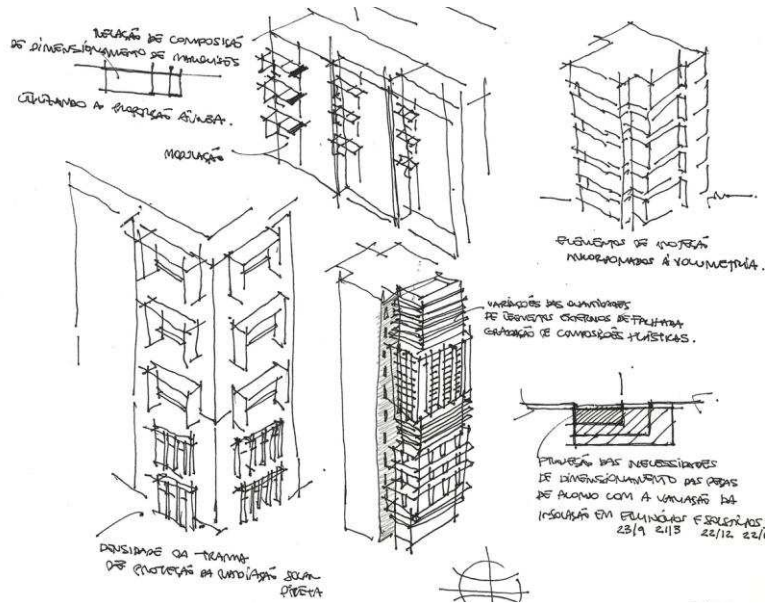 RELAÇÃO DE COMPOSIÇÃO
DE DIMENSIONAMENTO DE MARQUISES
UTILIZANDO A PROPORÇÃO ÁUREA.
MODULAÇÃO
ELEMENTOS DE PROTEÇÃO
INCORPORADOS À VOLUMETRIA.
VARIAÇÕES DAS QUANTIDADES
DE ELEMENTOS EXTERNOS DE FACHADA
GRADAÇÃO DE COMPOSIÇÕES PLÁSTICAS.
PROJEÇÃO DAS NECESSIDADES
DE DIMENSIONAMENTO DAS PEÇAS
DE ACORDO COM A VARIAÇÃO DA
INSOLAÇÃO EM EQUINÓCIOS E SOLSTÍCIOS.
23/9 21/3 22/12
DENSIDADE DA TRAMA
DE PROTEÇÃO DA RADIAÇÃO SOLAR
DIRETA